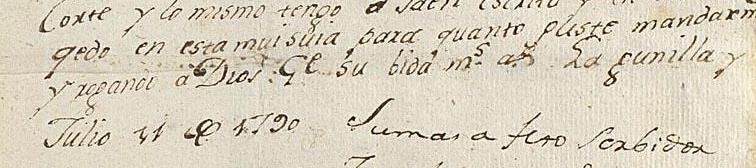 Corte y lo mismo tengo a Jaen escrito y
qedo en esta mui suia para quanto guste mandarm
y rogando á Dios Ge su bida ms as La gunilla y
Julio 11 de 1790 Su mas afecto Serbidor